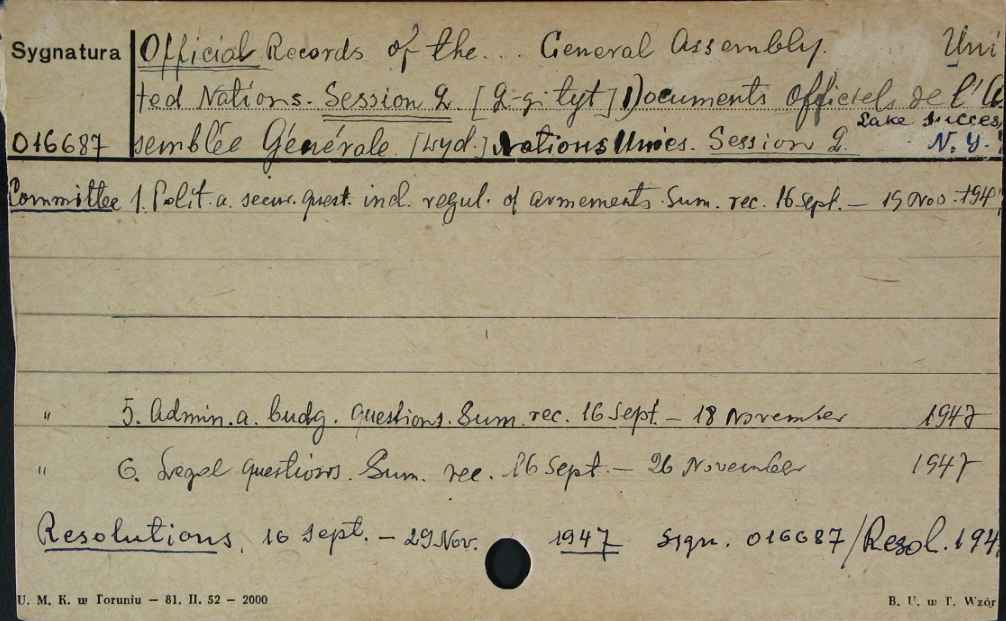 Sygnatura Official Records of the... General Assembly. Uni
ted Nations. Session 2. [2-gi tyt] Documents Officiels de l'As
016687 semblée Générale. [Wyd.] Nations Unies. Session 2. Lake Succes
N. Y.
Committee 1. Polit. a. secur. quest. incl. regul. of armements. Sum. rec. 16 Sept. — 19 Nov. 194
" 5. Admin. a. budg. questions. Sum. rec. 16 Sept. — 18 November 1947
" 6. Legal questions. Sum. rec. 16 Sept. — 26 November 1947
Resolutions, 16 Sept. — 29 Nov. 1947 Sygn. 016687/Resol. 194
U. M. K. w Toruniu — 81. II. 52 — 2000 B. U. w T. Wzór